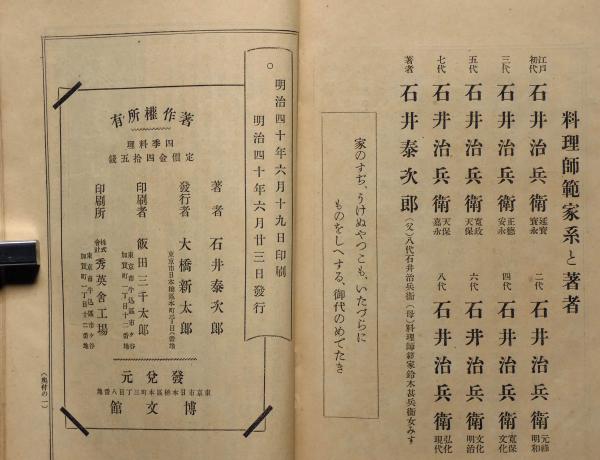 料理師範家系と著者
江戸初代 石井治兵衛 延寶寳永
二代 石井治兵衛 元祿明和
三代 石井治兵衛 正德安永
四代 石井治兵衛 寬保文化
五代 石井治兵衛 寬政天保
六代 石井治兵衛 文化明治
七代 石井治兵衛 天保嘉永
八代 石井治兵衛 弘化現代
著者 石井泰次郎 (父)八代石井治兵衛(母)料理師範家鈴木甚兵衛女みす
家のすぢ、うけぬやつこも、いたづらに
ものをしへする、御代のめでたき
明治四十年六月十九日印刷
明治四十年六月廿三日發行
著作權所有
四季料理
定價金四拾五錢
著者 石井泰次郎
發行者 大橋新太郎
東京市日本橋區本町三丁目八番地
印刷者 飯田三千太郎
東京市牛込區市ケ谷
加賀町一丁目十二番地
印刷所 株式會社 秀英舍工場
東京市牛込區市ケ谷
加賀町一丁目十二番地
發兌元
東京市日本橋區本町三丁目八番地
博文館
(奧付の一)